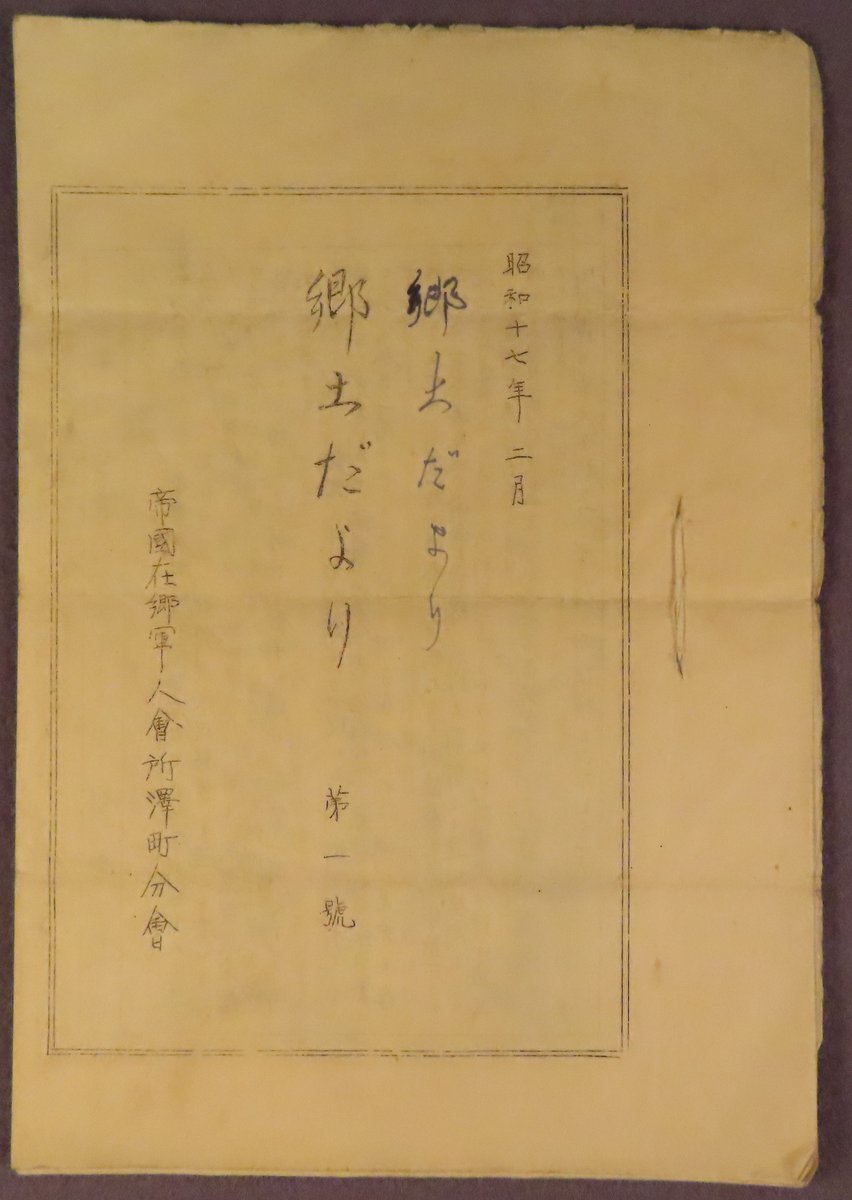 昭和十七年 二月
郷土だより
郷土だより 第一號
帝國在郷軍人會所澤町分會